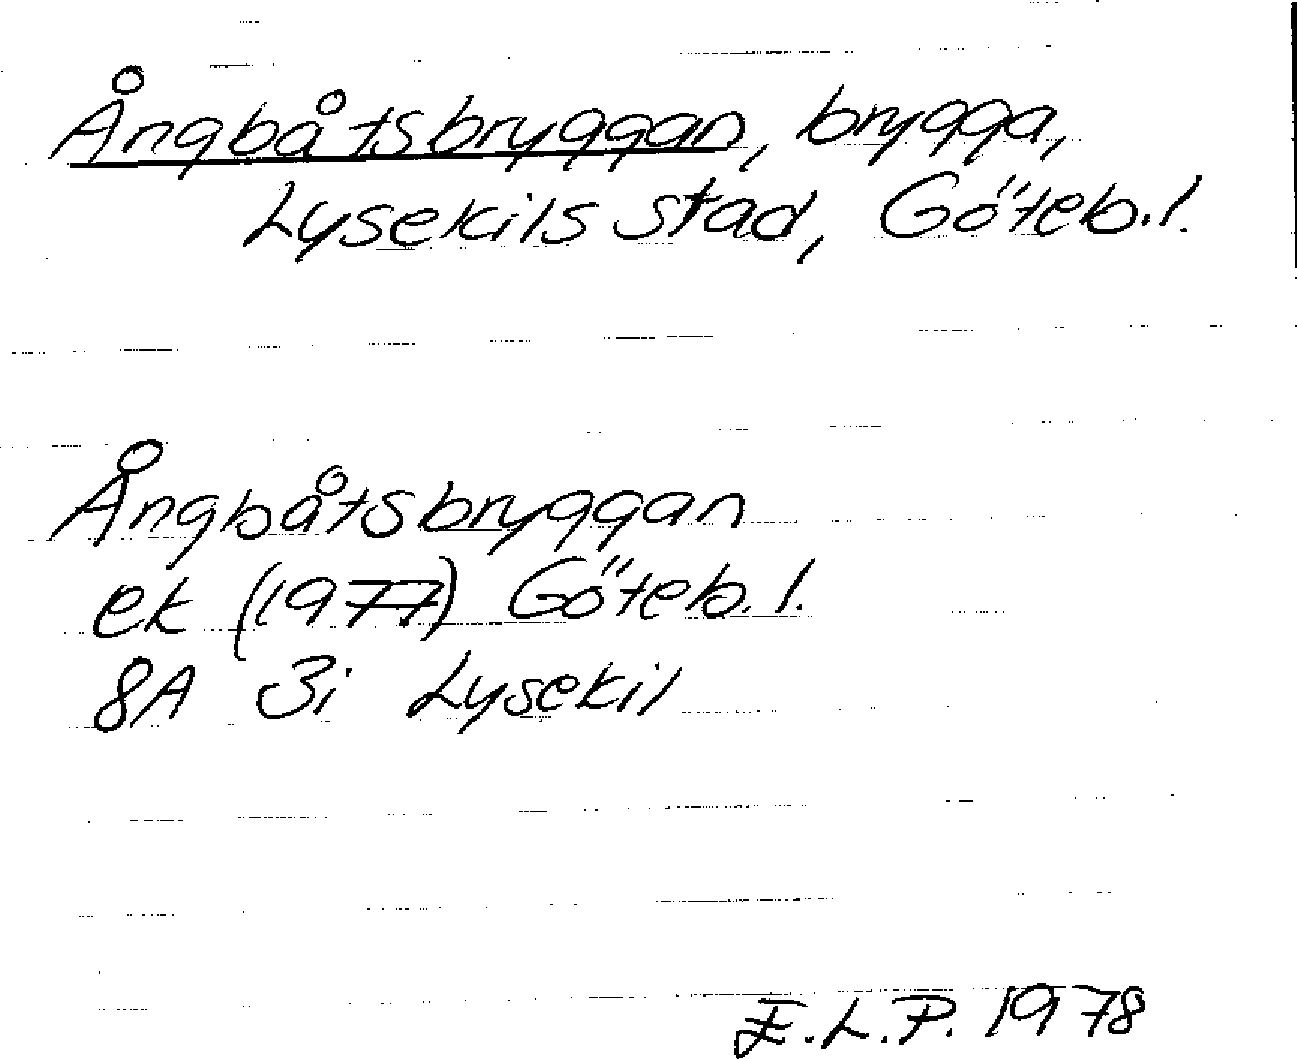 Ångbåtsbryggan, brygga,
Lysekils stad, Göteb.l.
Ångbåtsbryggan
ek (1977) Göteb.l.
8A 3i Lysekil
E.L.P. 1978